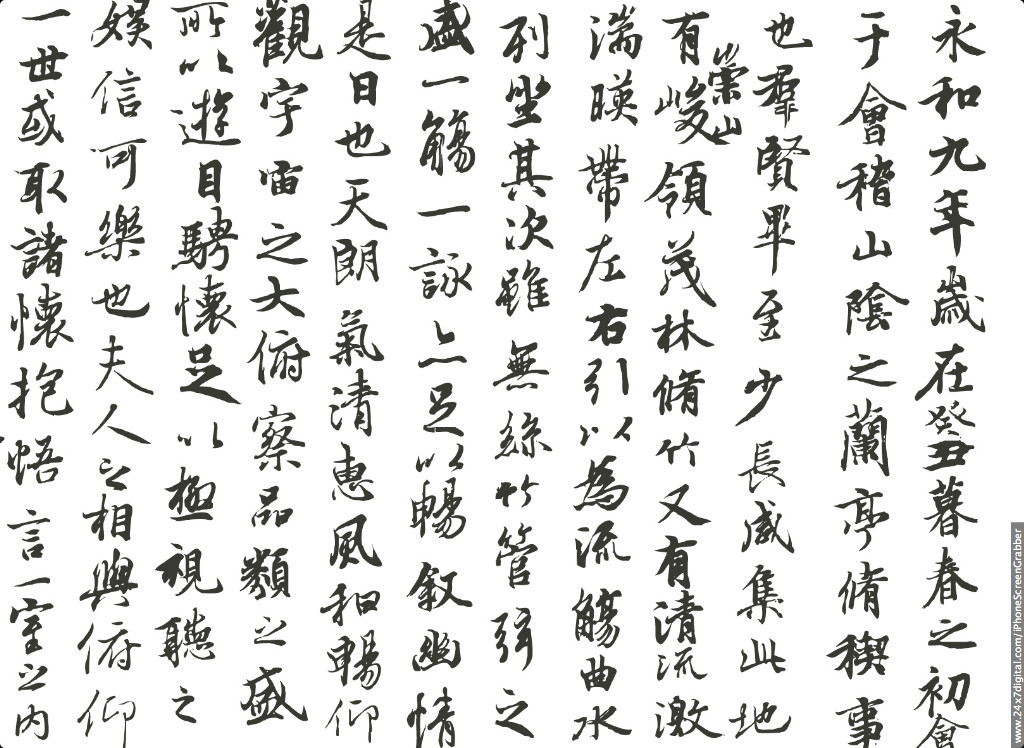 永和九年歲在癸丑暮春之初會
于會稽山陰之蘭亭脩稧事
也羣賢畢至少長咸集此地
有崇山峻領茂林脩竹又有清流激
湍暎帶左右引以為流觴曲水
列坐其次雖無絲竹管弦之
盛一觴一詠亦足以暢敘幽情
是日也天朗氣清惠風和暢仰
觀宇宙之大俯察品類之盛
所以遊目騁懷足以極視聽之
娛信可樂也夫人之相與俯仰
一世或取諸懷抱悟言一室之內
www.24x7digital.com/iPhoneScreenGrabber